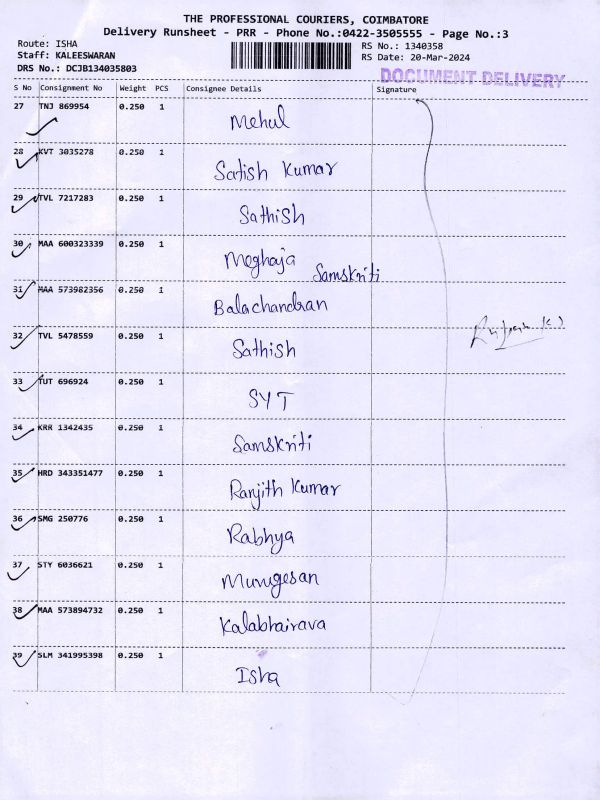 THE PROFESSIONAL COURIERS, COIMBATORE
Delivery Runsheet - PRR - Phone No.:0422-3505555 - Page No.:3
Route: ISHA
Staff: KALEESWARAN
DRS No.: DCJB134035803
RS No.: 1340358
RS Date: 20-Mar-2024
DOCUMENT DELIVERY
S No Consignment No Weight PCS Consignee Details Signature
27 TNJ 869954 0.250 1 Mehul
28 KVT 3035278 0.250 1 Satish Kumar
29 TVL 7217283 0.250 1 Sathish
30 MAA 600323339 0.250 1 Meghaja Samskriti
31 MAA 573982356 0.250 1 Balachandran
32 TVL 5478559 0.250 1 Sathish
33 TUT 696924 0.250 1 SYT
34 KRR 1342435 0.250 1 Samskriti
35 HRD 343351477 0.250 1 Ranjith Kumar
36 SMG 250776 0.250 1 Rabhya
37 STY 6036621 0.250 1 Murugesan
38 MAA 573894732 0.250 1 Kalabhairava
39 SLM 341995398 0.250 1 Isha